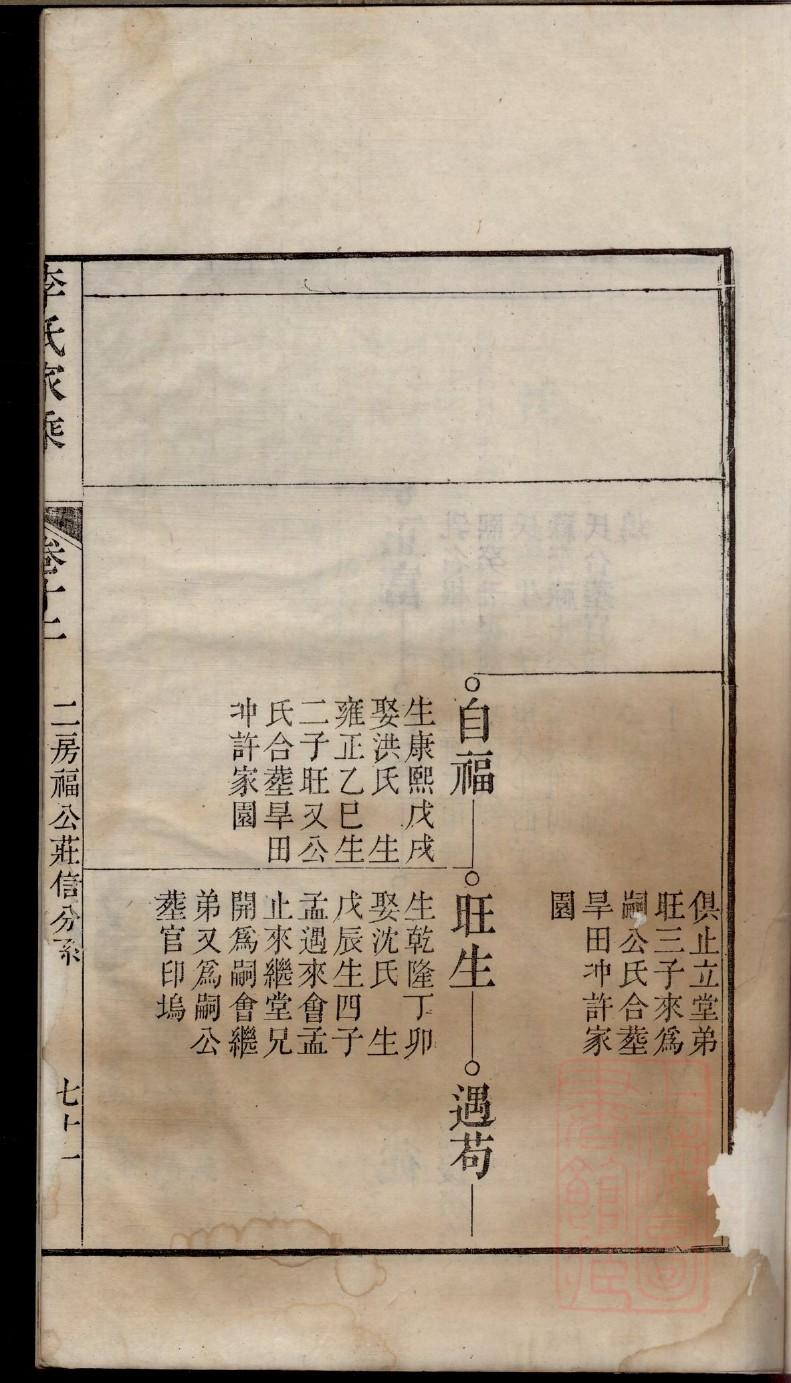 俱止立堂弟
旺三子來爲
嗣公氏合塟
旱田冲許家
園
自福
生康熙戊戌
娶洪氏 生
雍正乙巳生
二子旺又公
氏合塟旱田
冲許家園
旺生
生乾隆丁卯
娶沈氏 生
戊辰生四子
孟遇來會孟
止來繼堂兄
開爲嗣會繼
弟又爲嗣公
塟官印塢
遇苟
李氏家乘
卷十二
二房福公莊信分系
七十一